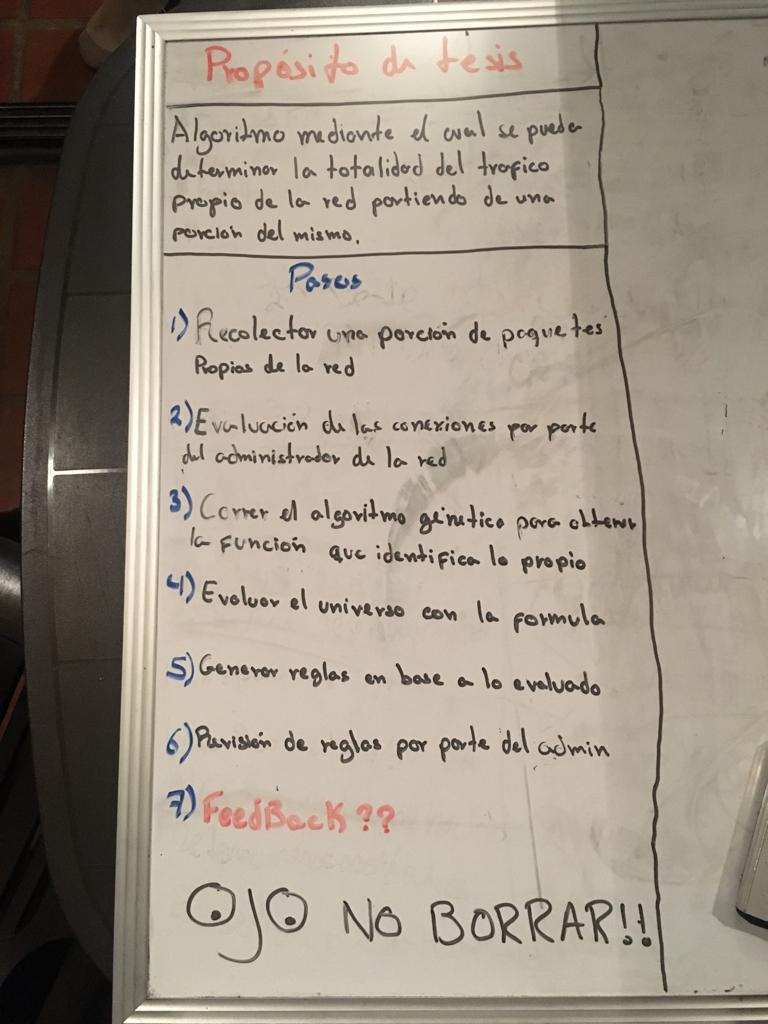 Propósito de tesis
Algoritmo mediante el cual se pueda
determinar la totalidad del trafico
propio de la red partiendo de una
porción del mismo.
Pasos
1) Recolectar una porción de paquetes
Propios de la red
2) Evaluación de las conexiones por parte
del administrador de la red
3) Correr el algoritmo genetico para obtener
la función que identifica lo propio
4) Evaluar el universo con la formula
5) Generar reglas en base a lo evaluado
6) Revisión de reglas por parte del admin
7) FeedBack ??
OJO NO BORRAR!!